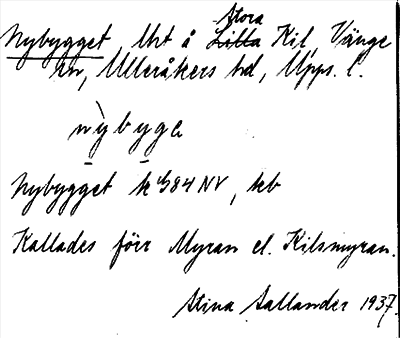 Stora
Nybygget lht å Lilla Kil, Vänge
sn, Ulleråkers hd, Upps. l.
nỳbyge
Nybygget k 984 NV, keb
Kallades förr Myran el. Kilsmyran.
Stina Sallander 1937.